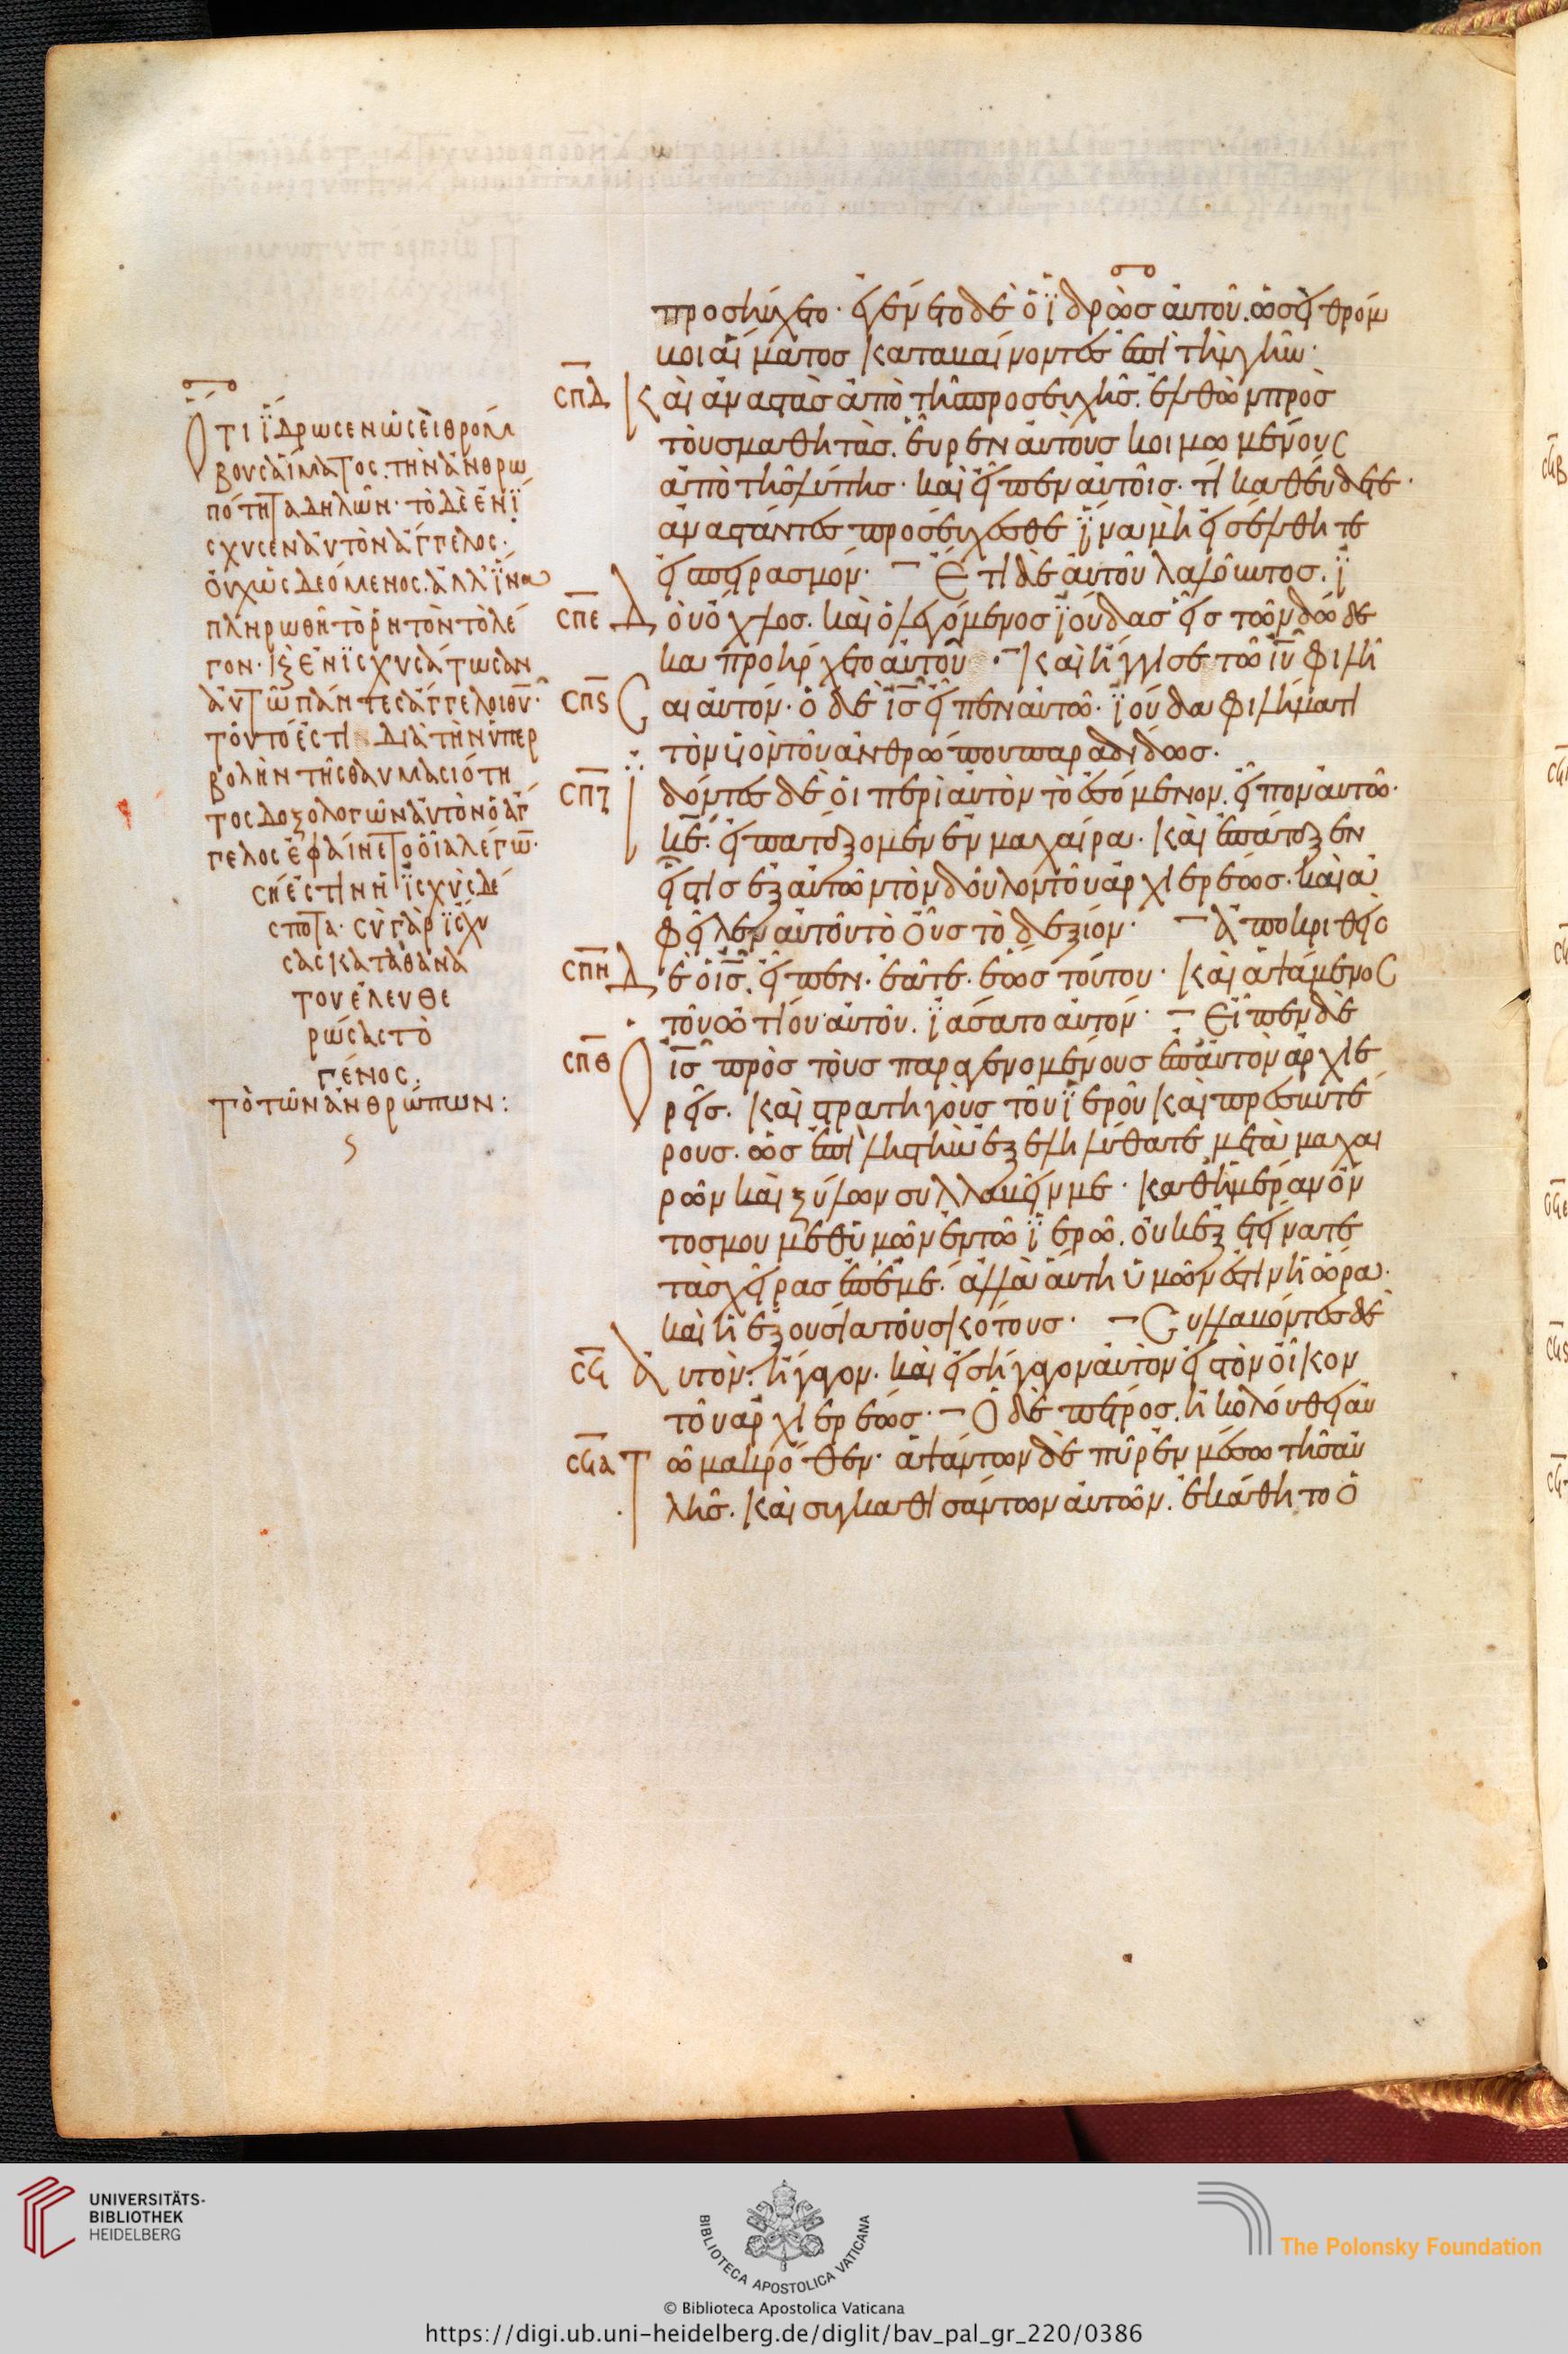 Ὅτι ἵδρωσεν ὡσεὶ θρόμ
βους αἵματος. τὴν ἀνθρω
πότητα δηλῶν· τὸ δὲ ἐνΐ
σχυσεν αὐτὸν ἄγγελος·
οὐχ ὡς δεόμενος. ἀλλ' ἵνα
πληρωθῆ τὸ ῥητὸν τὸ λέ
γον· ἐνϊσχυσάτωσαν
αὐτῶ πάντες ἄγγελοι θῦ·
τοῦτό ἐστι διὰ τὴν ὑπερ
βολὴν τῆς θαυμασιότη
τος δοξολογῶν αὐτὸν ὁ ἄγ
γελος ἐφαίνετο οἷα λέγω·
σή ἐστιν ἡ ἰσχὺς δέ
σποτα· σὺ γὰρ ἴσχυ
σας κατὰ θανά
του ἐλευθε
ρώσας τὸ
γένος,
τὸ τῶν ἀνθρώπων:
προσηύχετο· ἐγένετο δὲ ὁ ἱδρὼς αὐτοῦ. ὡσεὶ θρόμ
βοι αἵματος καταβαίνοντες ἐπὶ τὴν γῆν·
σπδ Καὶ ἀναστὰς ἀπὸ τῆς προσευχῆς. ἐλθὼν πρὸς
τοὺς μαθητὰς. εὗρεν αὐτοὺς κοιμωμένους
ἀπὸ τῆς λύπης· καὶ εἶπεν αὐτοῖς· τί καθεύδετε·
ἀναστάντες προσεύχεσθε ἵνα μὴ εἰσέλθητε
εἰς πειρασμόν· Ἔτι δὲ αὐτοῦ λαλοῦντος. ἰ
σπε Δοὺ ὄχλος. καὶ ὁ λεγόμενος ἰούδας εἷς τῶν δώδε
κα προήρχετο αὐτοῦ· καὶ ἤγγισε τῶ ἰῦ φιλῆ
σπς Σαι αὐτόν· ὁ δὲ ἰς εἶπεν αὐτῶ· ἰούδα φιλήματι
τὸν υἱὸν τοῦ ἀνθρώπου παραδίδως·
σπζ Ἰδόντες δὲ οἱ περὶ αὐτὸν τὸ ἐσόμενον. εἶπον αὐτῶ·
κε· εἰ πατάξομεν ἐν μαχαίρα· καὶ ἐπάταξεν
εἷς τις ἐξ αὐτῶν τὸν δοῦλον τοῦ ἀρχιερέως· καὶ ἀ
φεῖλεν αὐτοῦ τὸ οὖς τὸ δεξιόν· Ἀποκριθεὶς
σπη Δὲ ὁ ἰς. εἶπεν· ἐᾶτε· ἕως τούτου· καὶ ἁψάμενος
τοῦ ὠτίου αὐτοῦ. ἰάσατο αὐτόν· Εἶπεν δὲ
σπθ Ὁ ἰς πρὸς τοὺς παραγενομένους ἐπ' αὐτὸν ἀρχιε
ρεῖς. καὶ στρατηγοὺς τοῦ ἱεροῦ καὶ πρεσβυτέ
ρους. ὡς ἐπὶ ληστὴν ἐξεληλύθατε μετὰ μαχαι
ρῶν καὶ ξύλων συλλαβεῖν με· καθημέραν ὄν
τος μου μεθ' ὑμῶν ἐν τῶ ἱερῶ. οὐκ ἐξετείνατε
τὰς χεῖρας ἐπ' ἐμέ· ἀλλὰ αὕτη ὑμῶν ἐστιν ἡ ὥρα·
καὶ ἡ ἐξουσία τοῦ σκότους· Συλλαβόντες δὲ
σϟ Αὐτὸν. ἤγαγον· καὶ εἰσήγαγον αὐτὸν εἰς τὸν οἶκον
τοῦ ἀρχιερέως· Ὁ δὲ πέτρος. ἠκολούθει αὐ
σϟα Τῶ μακρόθεν· ἁψάντων δὲ πῦρ ἐν μέσω τῆς αὐ
λῆς. καὶ συγκαθισάντων αὐτῶν. ἐκάθητο ὁ
UNIVERSITÄTS-
BIBLIOTHEK
HEIDELBERG
BIBLIOTECA APOSTOLICA VATICANA
The Polonsky Foundation
© Biblioteca Apostolica Vaticana
https://digi.ub.uni-heidelberg.de/diglit/bav_pal_gr_220/0386